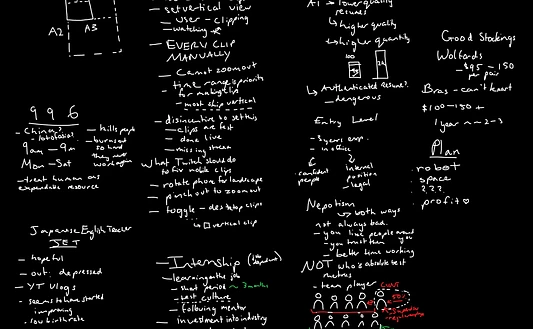 A2
A3
996
- China?
9am - 9pm
Mon - Sat
- hills people
- burns out
so hard
they were
working
- treat humans as
expendable resource
Japanese English Teacher
JET
- hopeful
- out: depressed
- YT Vlogs
- seems to have started
improving
- low birthrate
- set vertical view
- user - clipping
- watching
- EVERY CLIP
MANUALLY
- Cannot zoom out
- time range & priority
for making clip
- most ship vertical
- disincentive to set this
- clips are fast
- done live
- missing stream
What Twitch should do
to fix mobile clips
- rotate phone for landscape
- pinch out to zoom out
- toggle - desktop clips
vertical clip
- Internship
- learning on the job
- short period ~ 3 months
- test culture
- following mentor
- investment into industry
AI → lower quality
resumes
↳ higher quality
↳ higher quantity
100
↳ Authenticated Resume?
- dangerous
Entry Level
- 3 years exp.
- in office
confident
people
internal
promotion
- legal
Nepotism
↳ both ways
not always bad.
- you like people around
- you trust them you
- better time working
NOT who's absolute best
metrics
- team player
Good Stockings
Wolfords
- $95 - 150
per pair
Bras - can't count
$100 - 150 +
1 year ~ 2-3
Plan
robot
space
? ? ?
profit